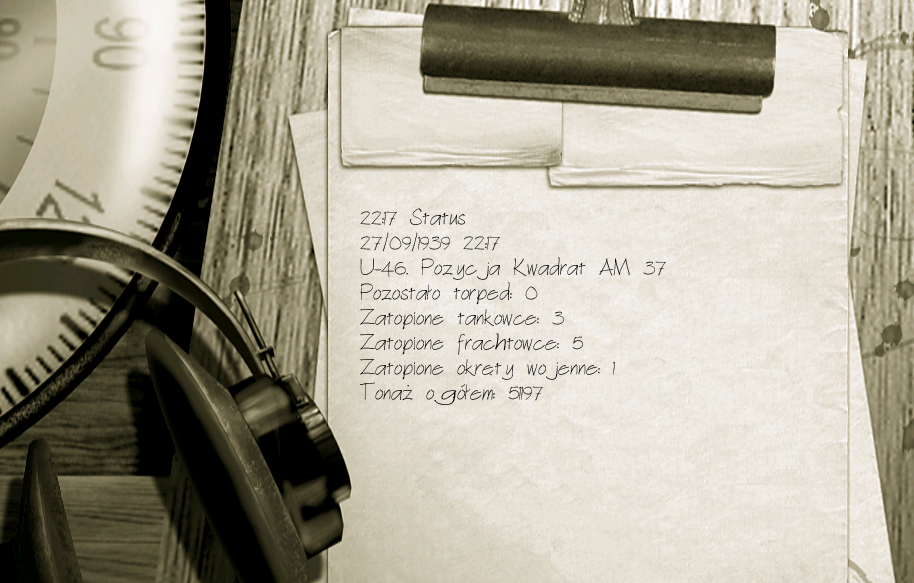 90
12
22:17 Status
27/09/1939 22:17
U-46. Pozycja Kwadrat AM 37
Pozostało torped: 0
Zatopione tankowce: 3
Zatopione frachtowce: 5
Zatopione okręty wojenne: 1
Tonaż ogółem: 51197